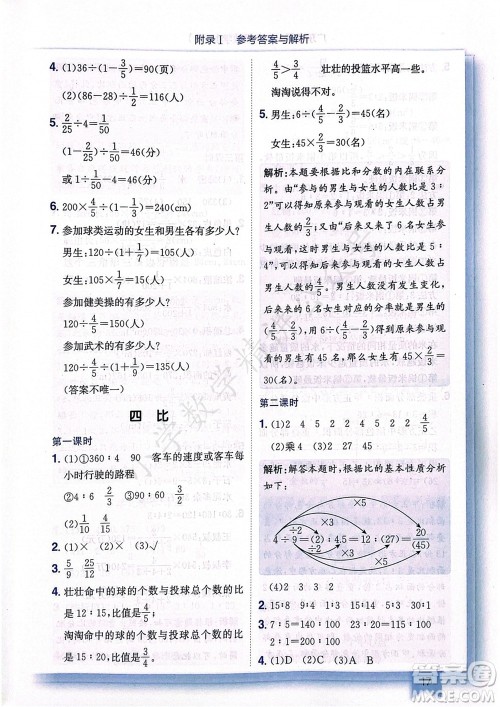 附录Ⅰ 参考答案与解析
4. (1)36÷(1−3/5)=90(页)
(2)(86−28)÷(1−1/2)=116(人)
5. 2/25÷4=1/50
(1−2/25)÷1/50=46(分)
或1÷1/50−4=46(分)
6. 200×4/5÷2/3=240(cm)
7. 参加球类运动的女生和男生各有多少人?
男生:120÷(1+1/7)=105(人)
女生:105×(1+1/7)=120(人)
参加健美操的有多少人?
120÷4/5=150(人)
参加武术的有多少人?
120÷4/5×(1−1/10)=135(人)
(答案不唯一)
四 比
第一课时
1. (1)①360∶4 90 客车的速度或客车每
小时行驶的路程
②4∶6 2/3 ③90∶60 3/2
(2)1/10 4/15
2. (1)× (2)× (3)√
3. 5/9 25/12 1
4. 壮壮命中的球的个数与投球总个数的比
是12∶15,比值是4/5;
淘淘命中的球的个数与投球总个数的比
是18∶24,比值是3/4。
4/5>3/4 壮壮的投篮水平高一些。
淘淘说得不对。
5. 男生:6÷(4/5−2/3)=45(名)
女生:45×2/3=30(名)
解析:本题要根据比和分数的内在联系分
析。由“参与的男生与女生的人数比是3∶
2”可以得知原来参与观看的女生人数是男
生人数的2/3;由“后来又来了6名女生参与
观看,这时男生与女生的人数比是5∶
4”可以得知后来参与观看的女生人数是男
生人数的4/5。男生人数没有发生变化,
后来的分率减去原来的分率就是6名女生
对应的分率,因此可以求得原来参与观
看的男生有45名,那么女生有45×2/3=
30(名)。
第二课时
1. (1)2 4 15 27 20 2 4/5
(2)乘4
(3)÷2 ×3 ×5
解析:解答本题时,根据比的基本性质分析。
×5
×3
÷2
4÷9=(2)∶4.5=12∶(27)=20/(45)
÷2
×3
×5
(4)2 4 3 2
2. 15∶8 9∶4 20∶1 15∶4 9∶1 3∶1
3. 7∶3 135∶100=27∶20
2∶1 200∶75=8∶3
4. (1)D (2)C (3)A B
17
小学数学精
答案圈
MXQE.COM